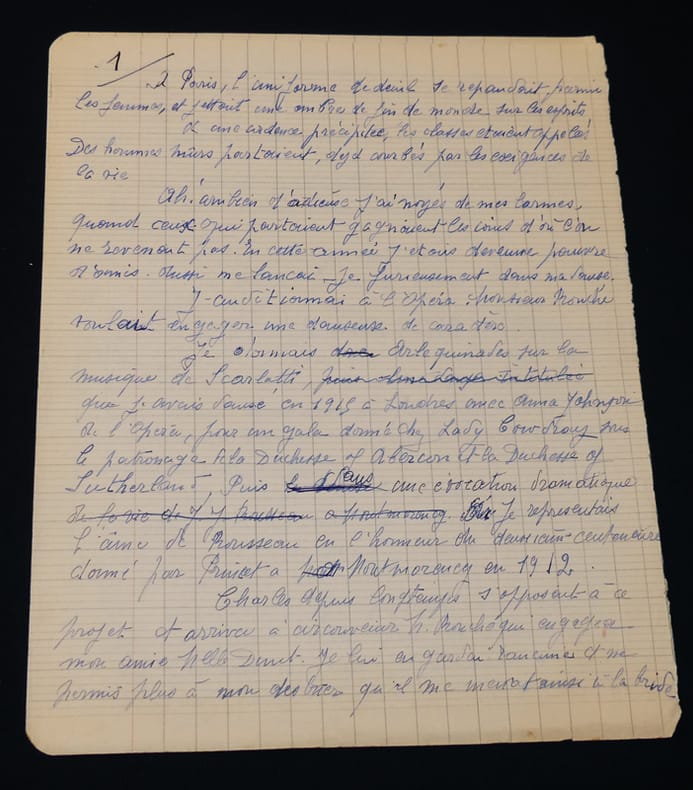 1
A Paris, l'uniforme de deuil se repandait parmi
les femmes, et jettait une ombre de fin de monde sur les esprits
D'une cadence précipitée, les classes etaient appelés
Des hommes mûrs partaient, dejà courbés par les exigences de
la vie
Ah! combien d'adieux j'ai noyés de mes larmes,
quand ceux qui partaient gagnaient les coins d'où l'on
ne revenait pas. En cette année j'etais devenue pauvre
d'amis. Aussi me lancai-je furieusement dans ma danse.
J'auditionnai à l'Opera : Monsieur Rouché
voulait engager une danseuse de caractère.
Je donnais Arlequinades sur la
musique de Scarlatti,
que j'avais dansé en 1915 à Londres avec Anna Johnson
de l'Opera, pour un gala donné chez Lady Cowdray sous
le patronage de la Duchesse of Abercon et la Duchesse of
Sutherland, Puis dans une évocation dramatique
de la vie de J J Rousseau a Montmorency. Je representais
l'âme de Rousseau en l'honneur du deuxième centenaire
donné par a Montmorency en 1912.
Charles depuis longtemps s'opposait à ce
projet et arriva à circonvenir M. Rouché qui engagea
mon amie Melle. Je lui en gardai rancune et ne
permis plus à mon qu'il me menat ainsi à la bride